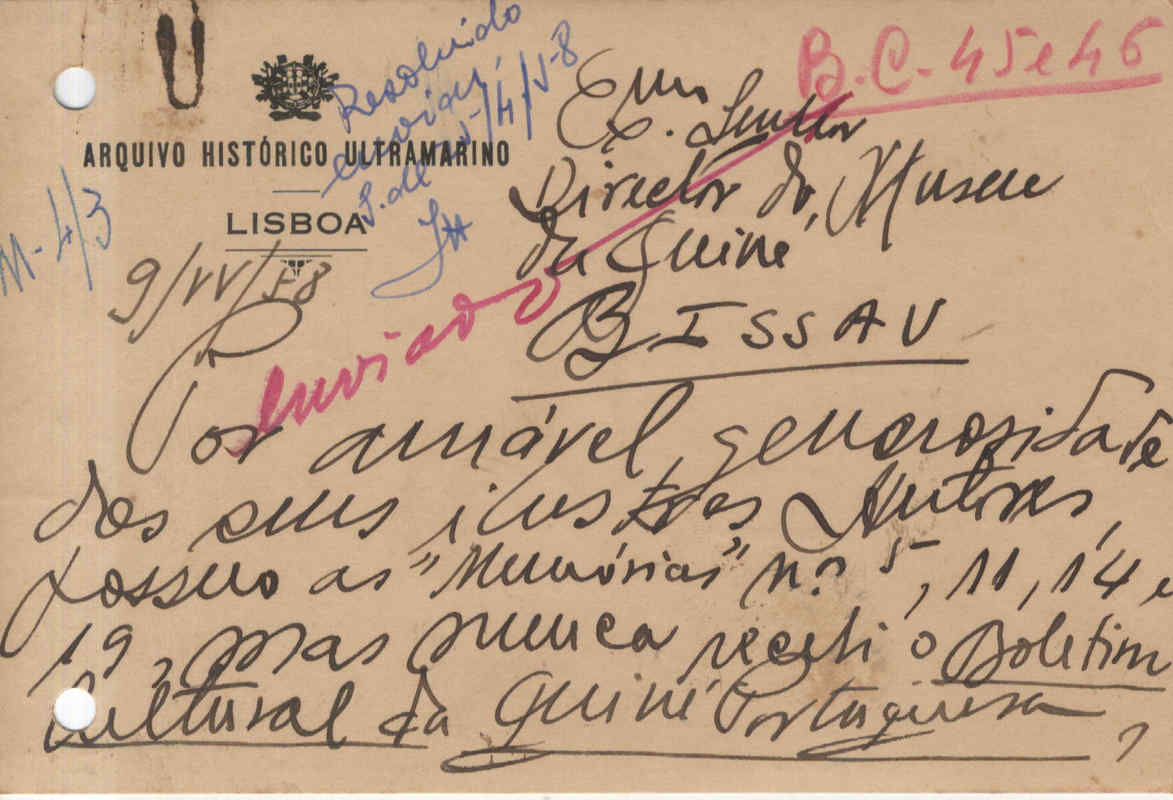 B.C. 45 e 46
Resolvido
S. de
ARQUIVO HISTÓRICO ULTRAMARINO
LISBOA
M-4/3
9/IV/58
Exmo. Senhor
Director do Museu
da Guiné
BISSAU
enviado
Por amável generosidade
dos seus ilustres Autores,
possuo as "Memórias" n.os 5, 11, 14 e
19, mas nunca recebi o Boletim
Cultural da Guiné Portuguesa,